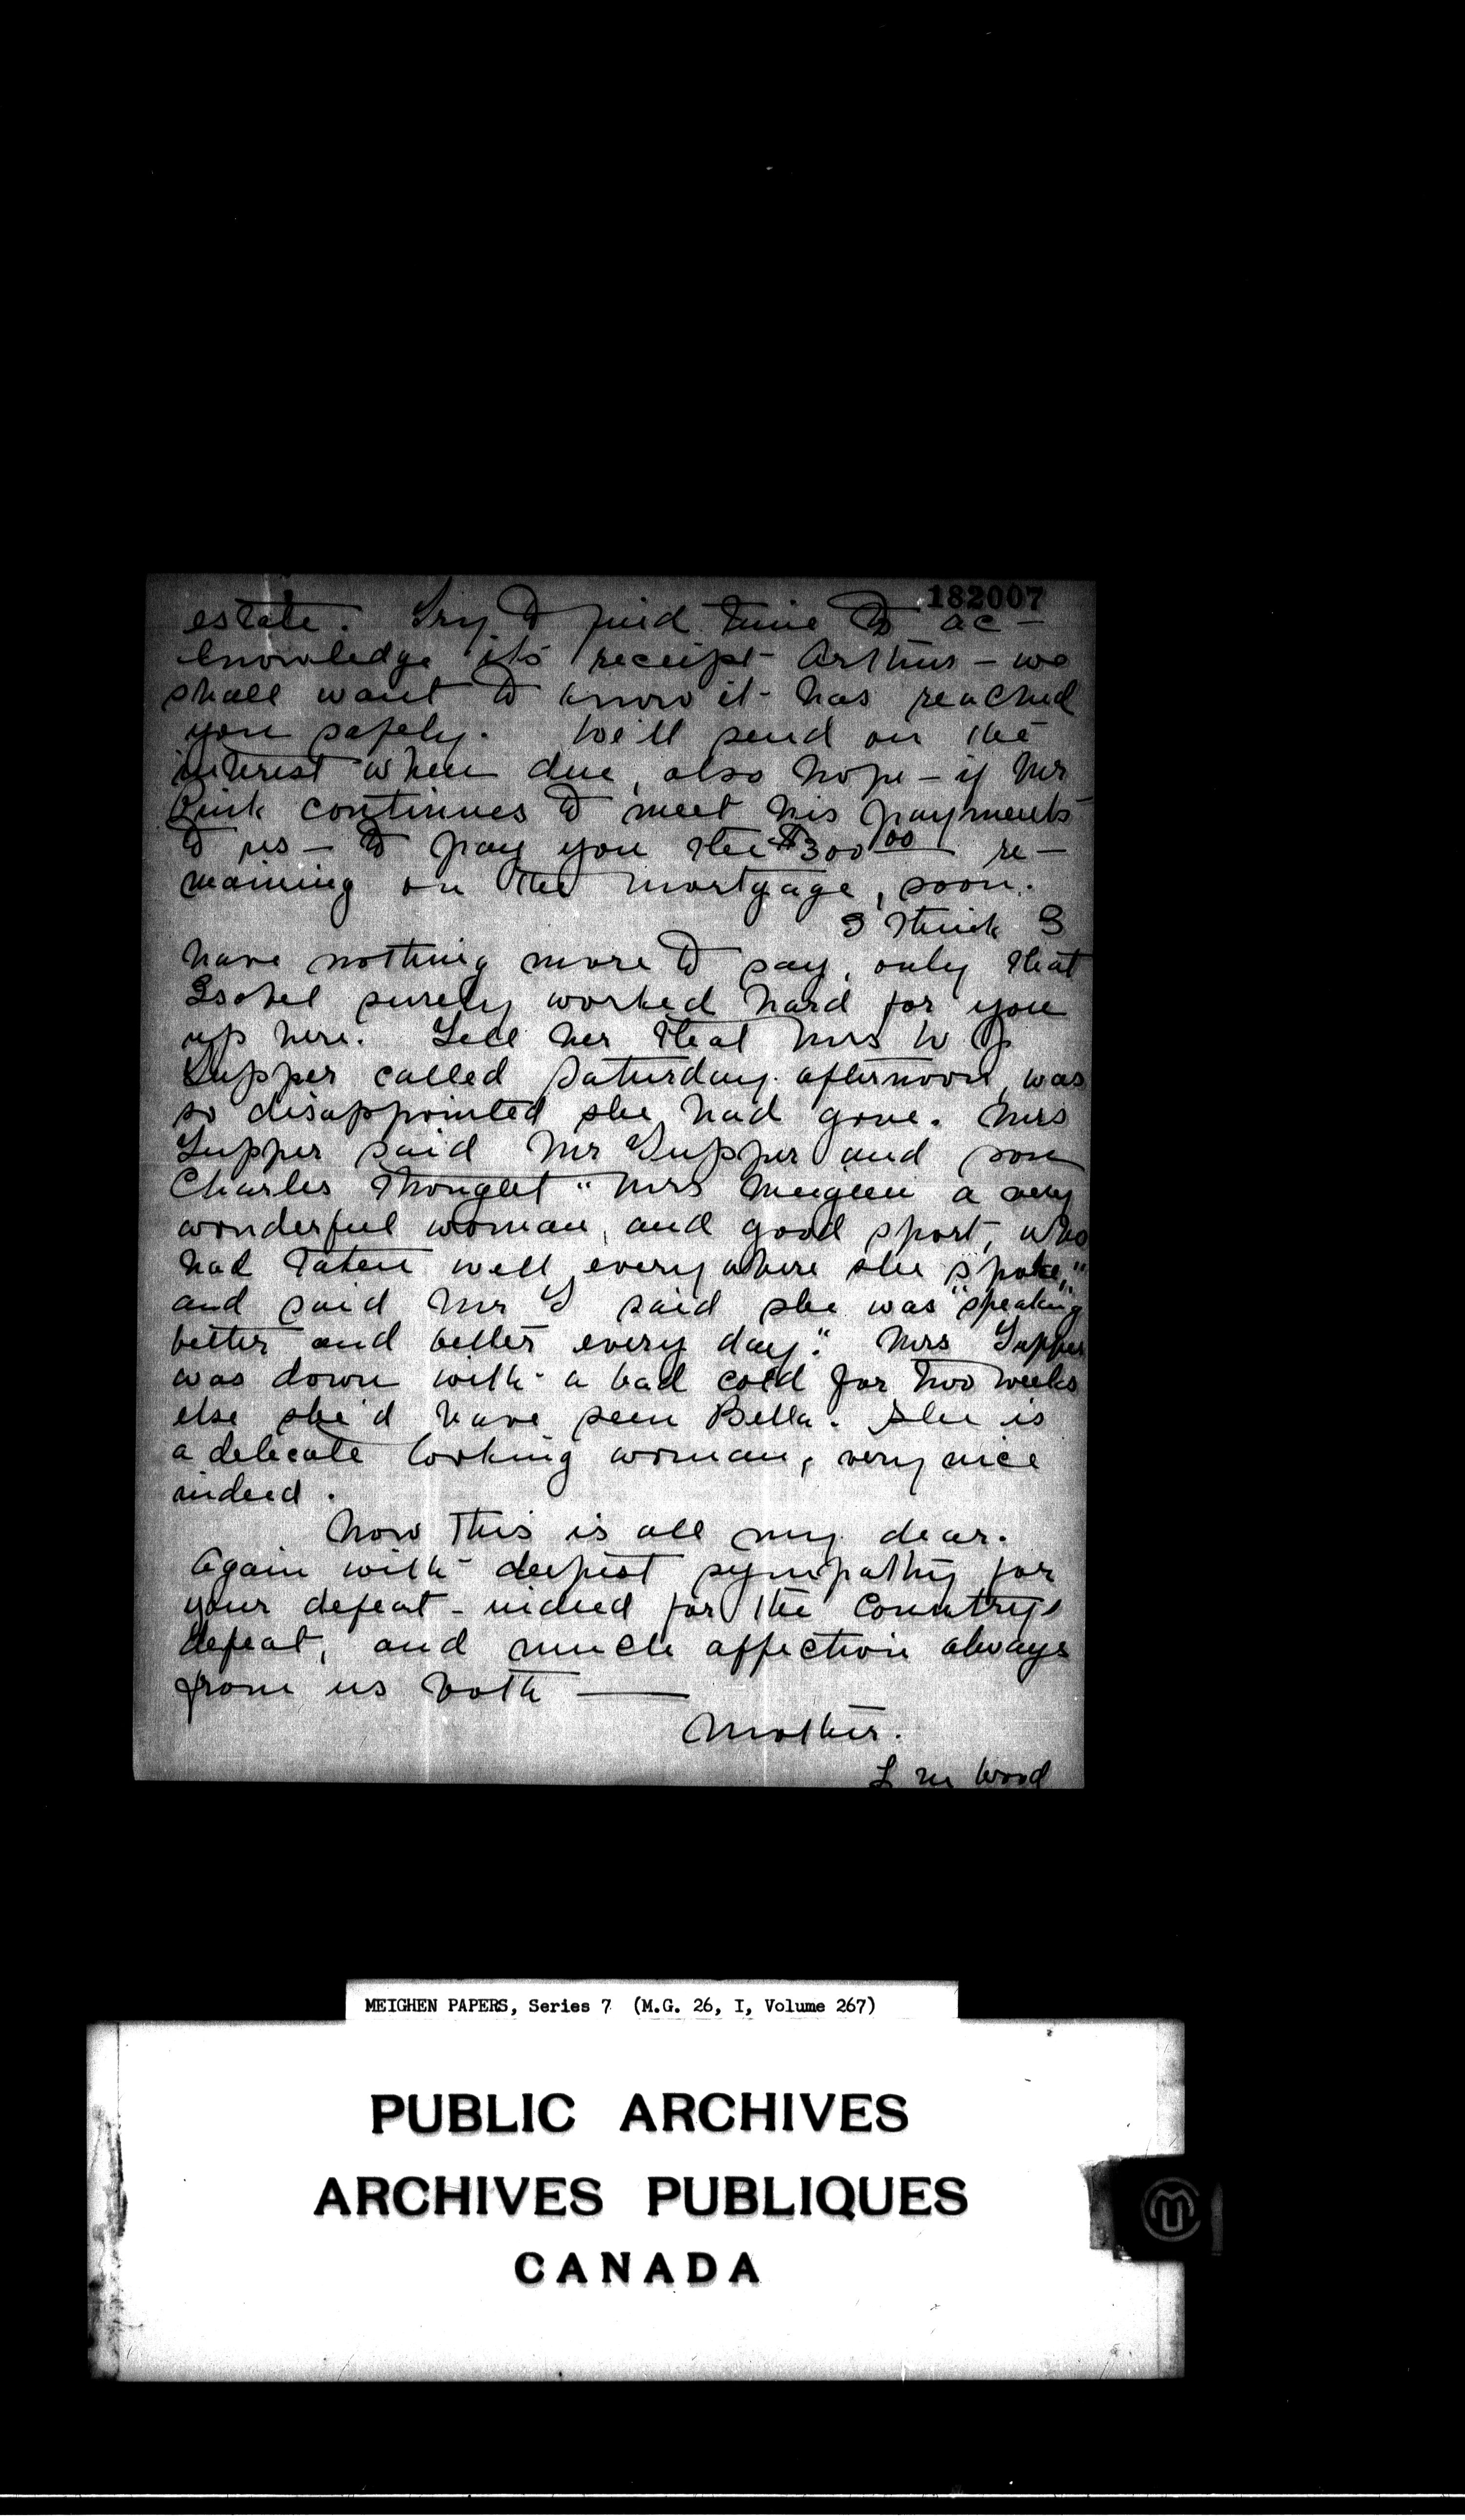 182007
estate. Try to find time to ac-
knowledge its receipt Arthur - we
shall want to know it has reached
you safely. We'll send on the
interest when due, also hope - if Mr
continues to meet his payments
to us - to pay you the $300.00 re-
maining on the mortgage, soon.
I think I
have nothing more to say, only that
Isobel surely worked hard for you
up here. Tell her that Mrs W J
Tupper called Saturday afternoon, was
so disappointed she had gone. Mrs
Tupper said Mr Tupper and son
Charles thought "Mrs Meighen a very
wonderful woman, and good sport, who
had taken well everywhere she spoke,"
and said Mr T said she was "speaking
better and better every day." Mrs Tupper
was down with a bad cold for two weeks
else she'd have seen Bella. She is
a delicate looking woman, very nice
indeed.
Now this is all my dear.
Again with deepest sympathy for
your defeat - indeed for the Country's
defeat, and much affection always
from us both —
Mother.
L M Wood
MEIGHEN PAPERS, Series 7 (M.G. 26, I, Volume 267)
PUBLIC ARCHIVES
ARCHIVES PUBLIQUES
CANADA